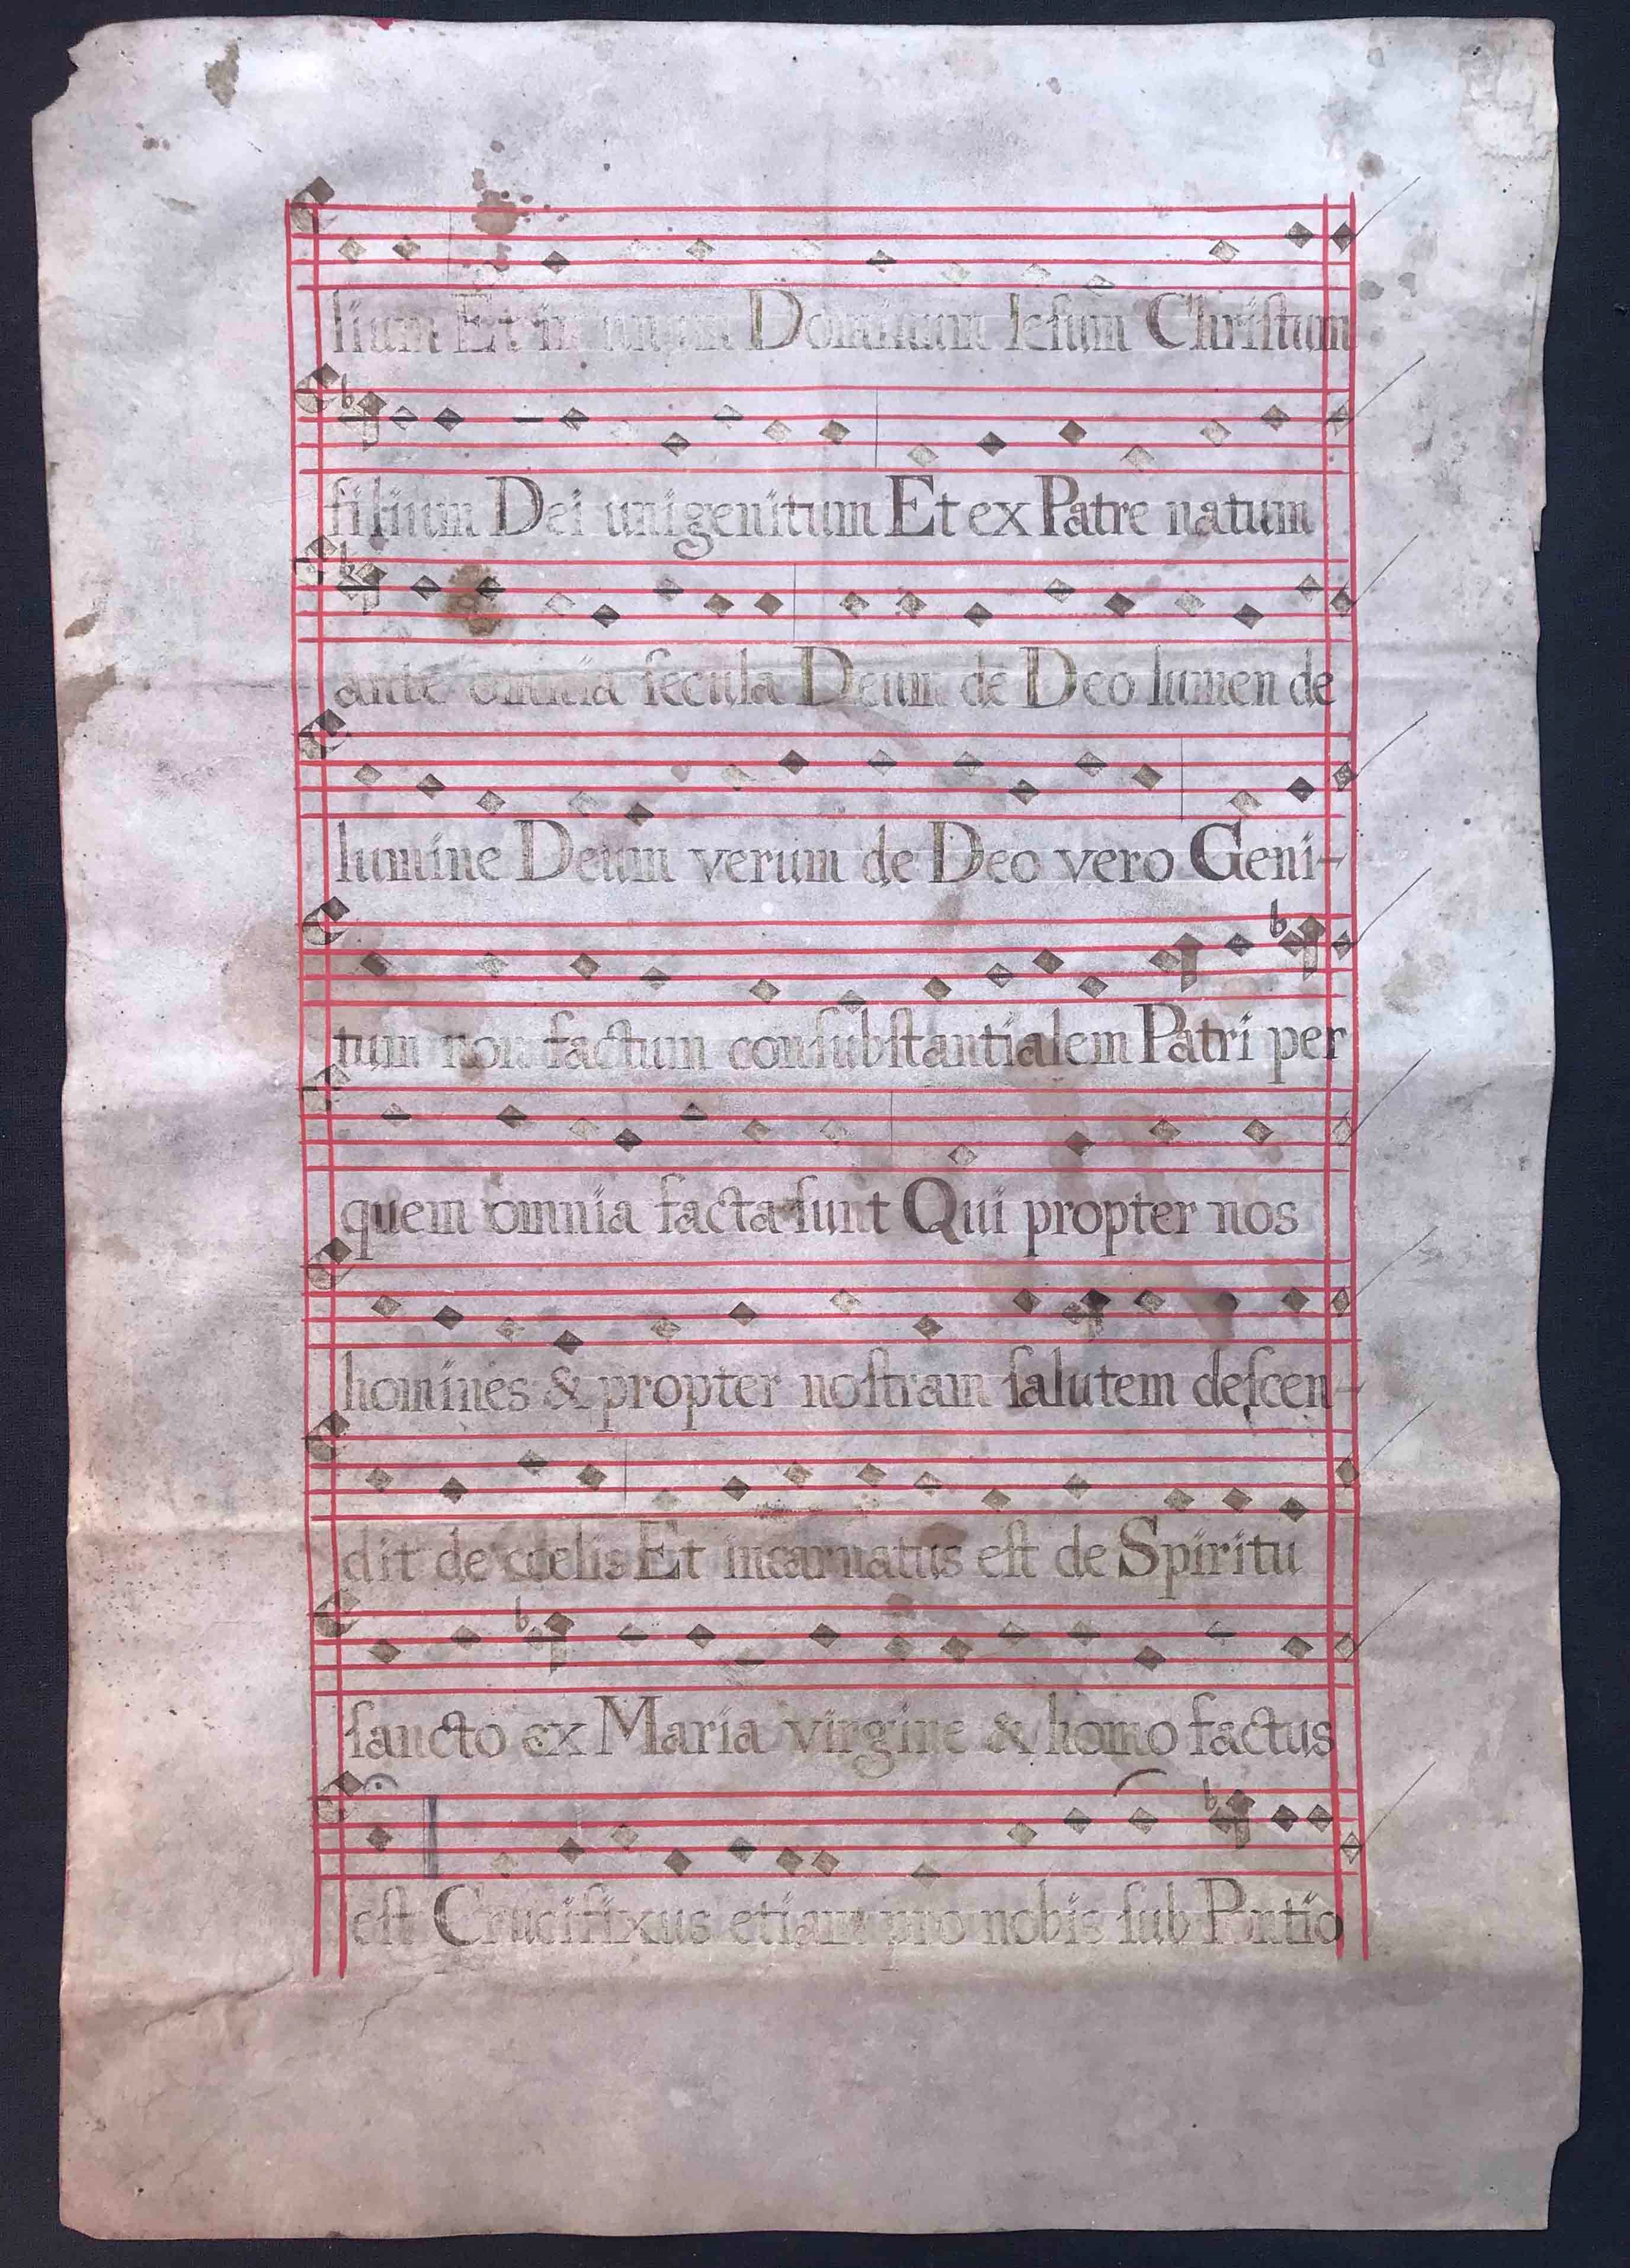 lium Et in unum Dominum Iesum Chriſtum
filium Dei unigenitum Et ex Patre natum
ante omnia ſecula Deum de Deo lumen de
lumine Deum verum de Deo vero Geni-
tum non factum conſubſtantialem Patri per
quem omnia facta ſunt Qui propter nos
homines & propter noſtram ſalutem deſcen-
dit de cœlis Et incarnatus eſt de Spiritu
ſancto ex Maria virgine & homo factus
eſt Crucifixus etiam pro nobis ſub Pontio